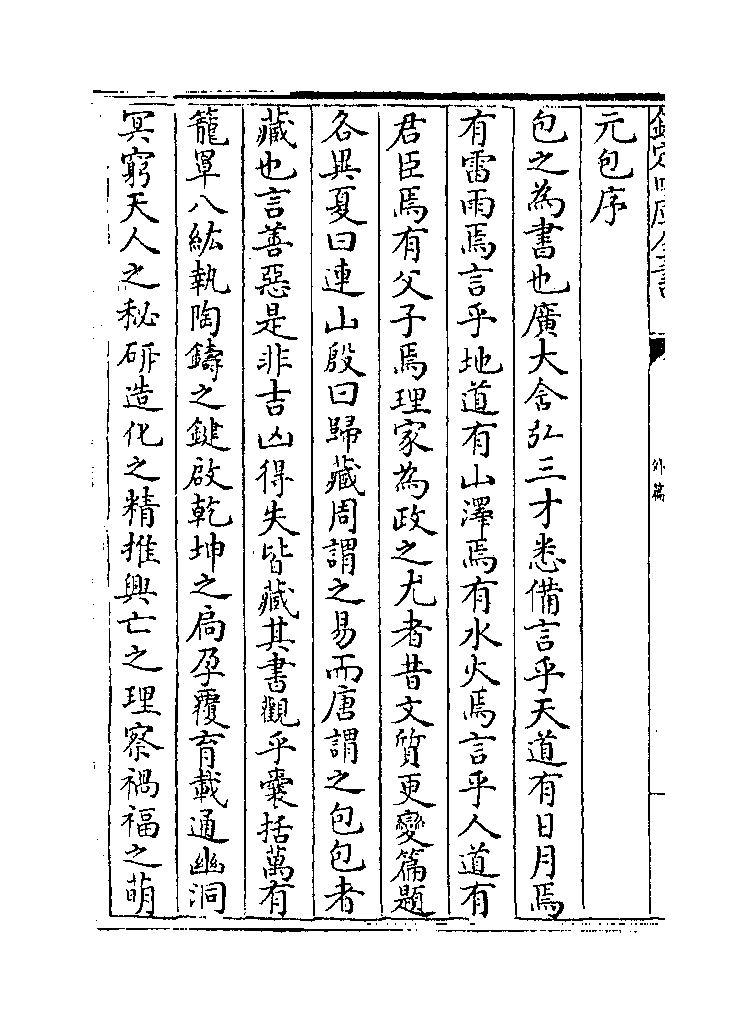 欽定四庫全書
外篇
元包序
包之為書也廣大含弘三才悉備言乎天道有日月焉
有雷雨焉言乎地道有山澤焉有水火焉言乎人道有
君臣焉有父子焉理家為政之尤者昔文質更變篇題
各異夏曰連山殷曰歸藏周謂之易而唐謂之包包者
藏也言善惡是非吉凶得失皆藏其書觀乎囊括萬有
籠罩八紘執陶鑄之鍵啟乾坤之扃孕覆育載通幽洞
冥窮天人之秘研造化之精推興亡之理察禍福之萌